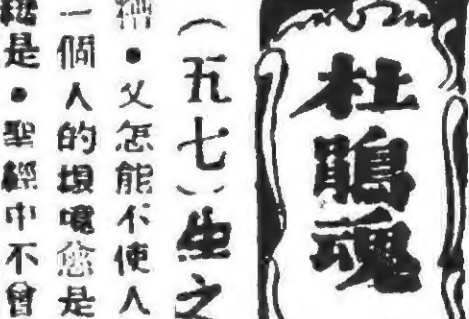 杜鵑魂
(五七)生之
槽•父怎能不使人
一個人的墳嘴愈是
是•聖經中不曾